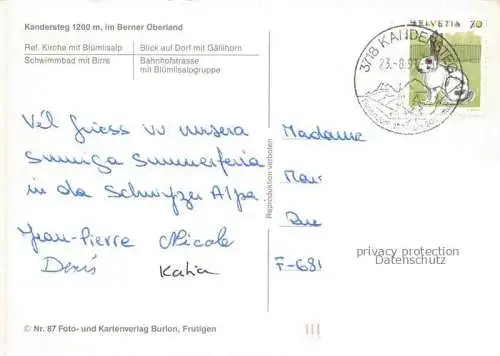 Kandersteg 1200 m, im Berner Oberland
Ref. Kirche mit Blümlisalp
Blick auf Dorf mit Gällihorn
Schwimmbad mit Birre
Bahnhofstrasse
mit Blümlisalpgruppe
HELVETIA 70
3718 KANDERSTEG
23.-8.9
Vêl Griess vu unsera
Sunniga Summerferia
in da Schwyzer Alpa.
Jean-Pierre Nicole
Denis Katia
Reproduktion verboten
Madame
Mar
Rue
F-681
privacy protection
Datenschutz
© Nr. 87 Foto- und Kartenverlag Burlon, Frutigen